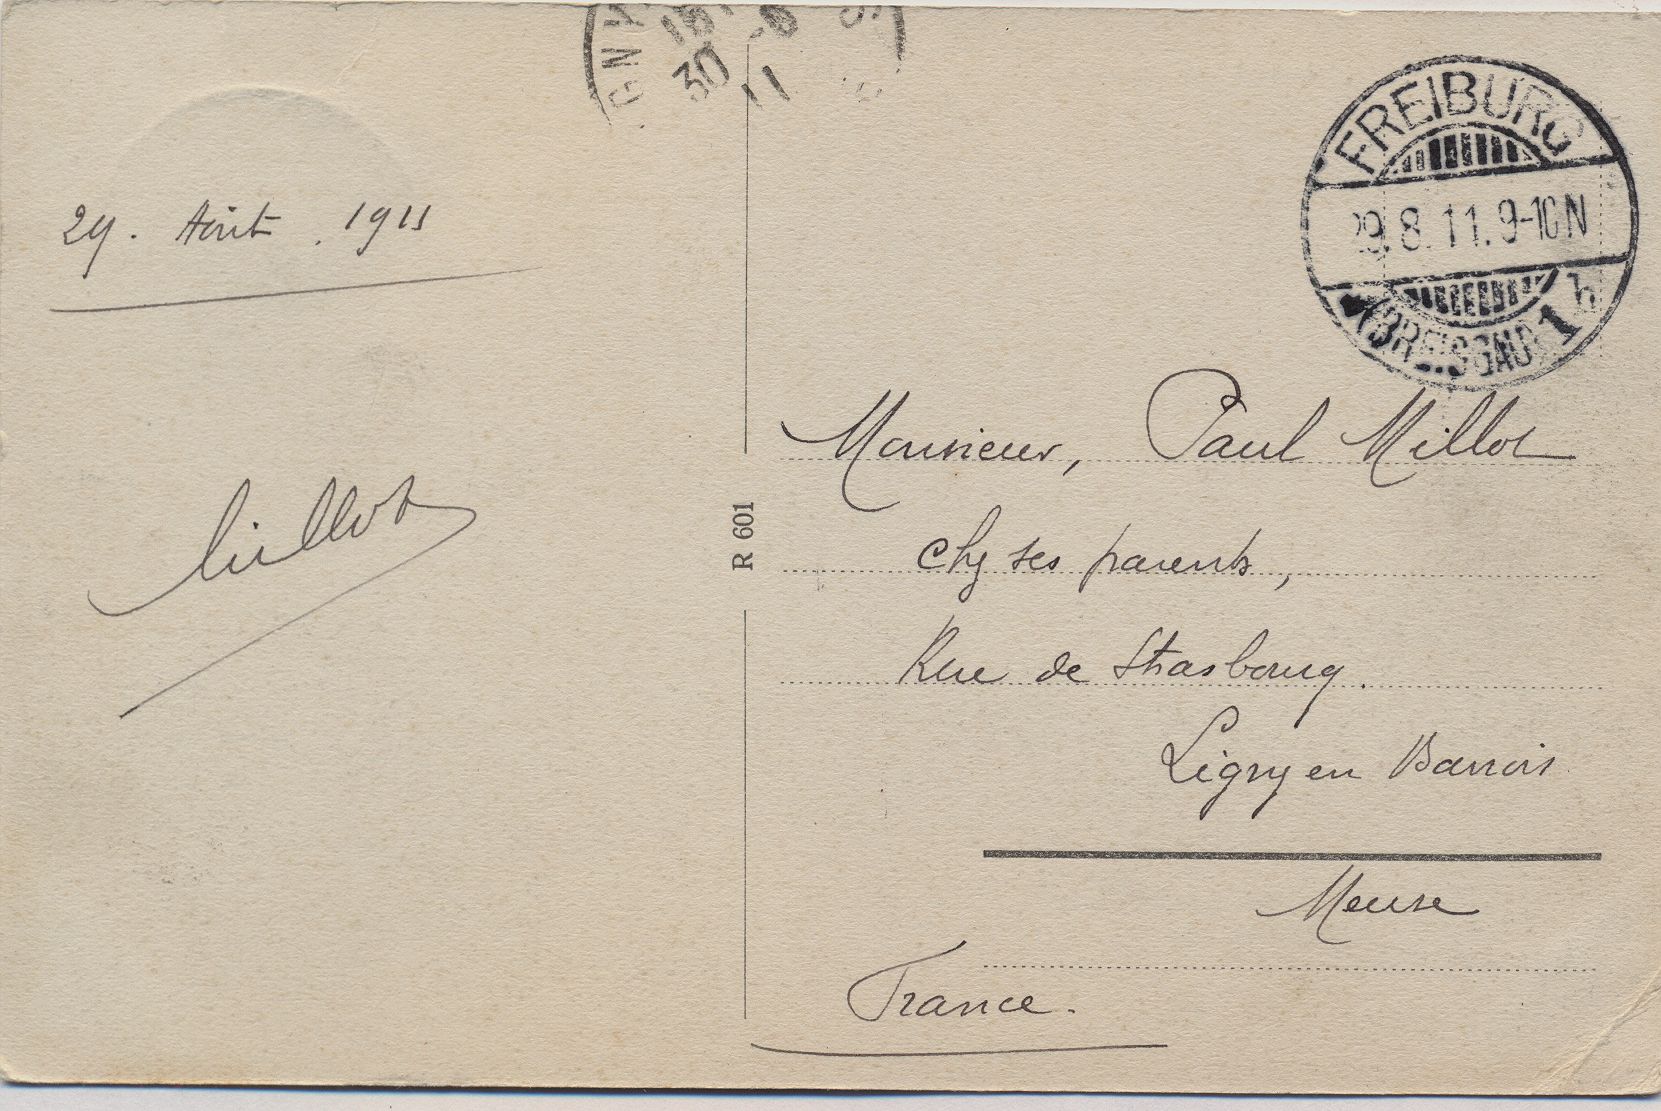 18
30 -8
11
FREIBURG
29.8.11.9-10N
(BREISGAU) 1 h
29. Août. 1911
Millot
R 601
Monsieur, Paul Millot
chz ses parents,
Rue de Strasbourg.
Ligny en Barrois
Meuse
France.